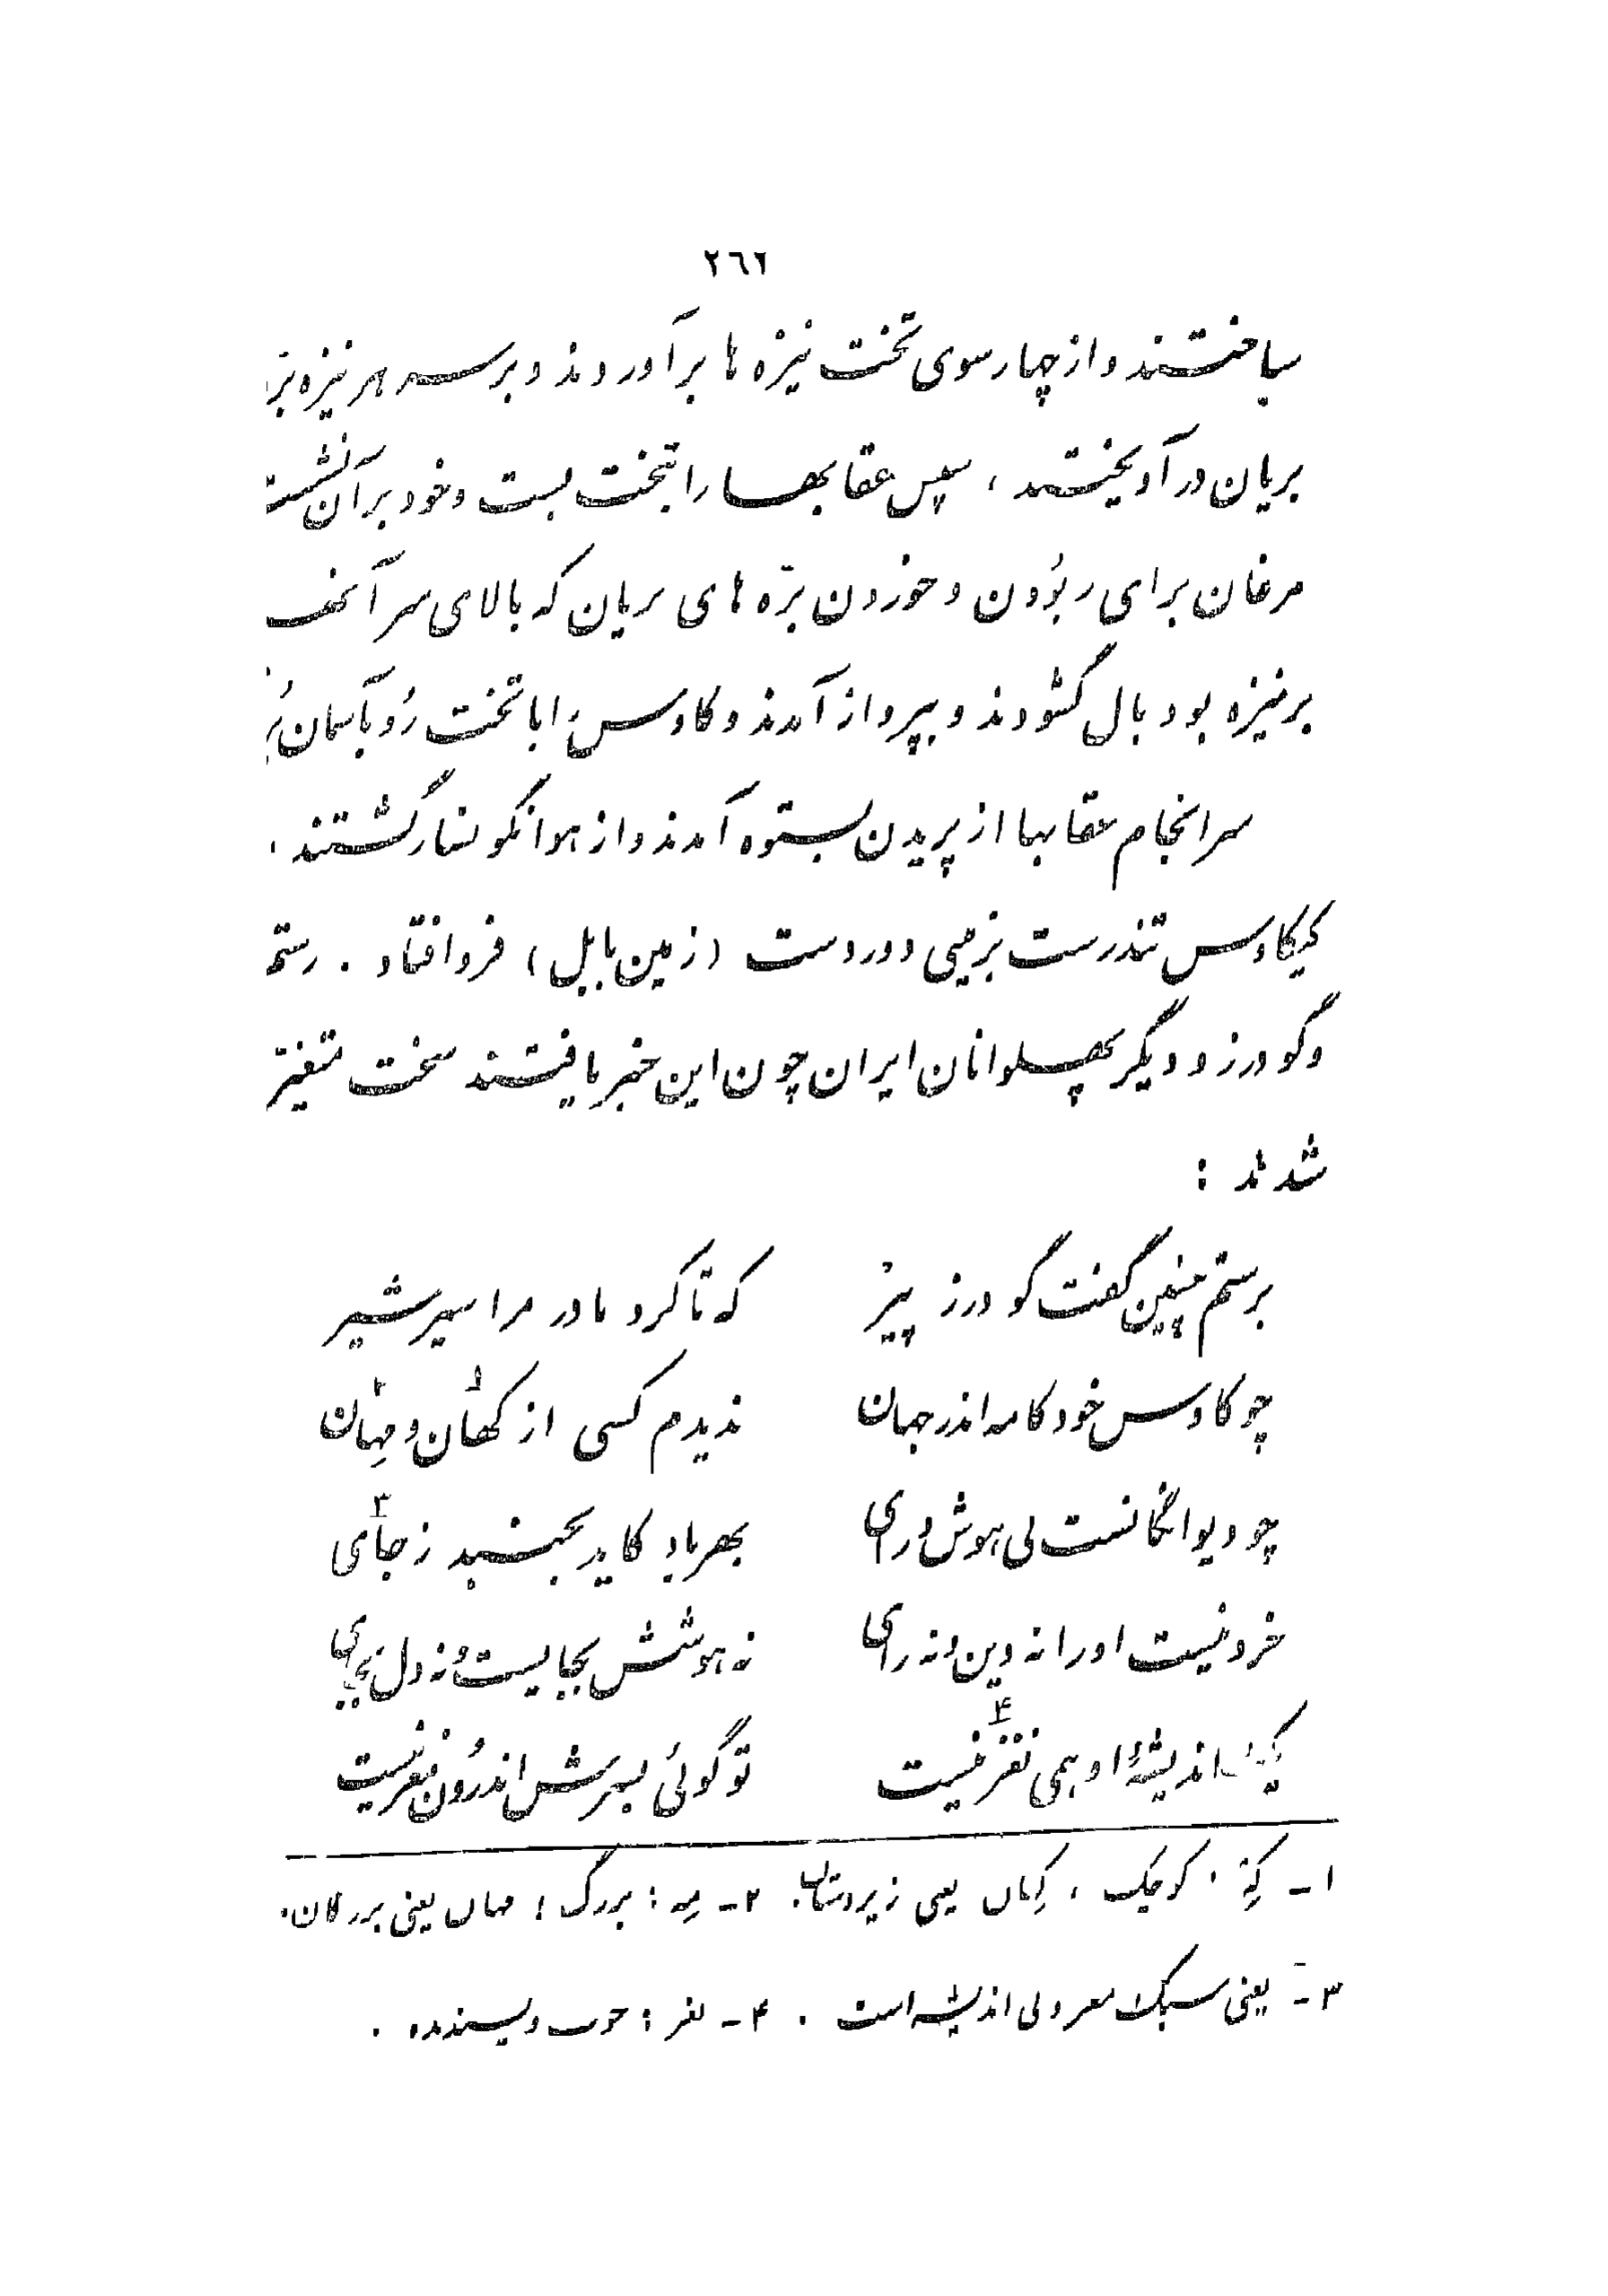 ٢٦٢
بساختند و از چهار سوی تخت نیزه ها برآوردند و بر سر هر نیزه
بریان درآویختند ، سپس عقابها را بتخت بست و خود بر آن نشست
مرغان برای ربودن و خوردن برّه های بریان که بالای سر آنها
بر نیزه بود بال گشودند و بپرواز آمدند و کاوس را با تخت رو بآسمان
سرانجام عقابها از پریدن بستوه آمدند و از هوا نگونسار گشتند ،
کیکاوس تندرست بزمینی دوردست (زمین بابل) فرو افتاد . رستم
و گودرز و دیگر پهلوانان ایران چون این خبر یافتند سخت متغیّر
شدند :
برستم چنین گفت گودرز پیر که تا کرد مادر مرا سیر شیر
چو کاوس خودکامه اندر جهان ندیدم کسی از کهان۱ و مهان۲
چو دیوانگانست بی هوش و رای بهر باد کاید بجنبد ز جای۳
خرد نیست او را نه دین و نه رای نه هوشش بجایست و نه دل بجای
اندیشهٔ او همی نغز۴ نیست تو گوئی بسرش اندرون مغز نیست
۱ـ کِه : کوچک ، کِهان یعنی زیردستان. ۲ـ مِه : بزرگ ؛ مهان یعنی بزرگان.
۳ـ یعنی سبک مغز و بی اندیشه است . ۴ـ نغز : خوب و پسندیده .